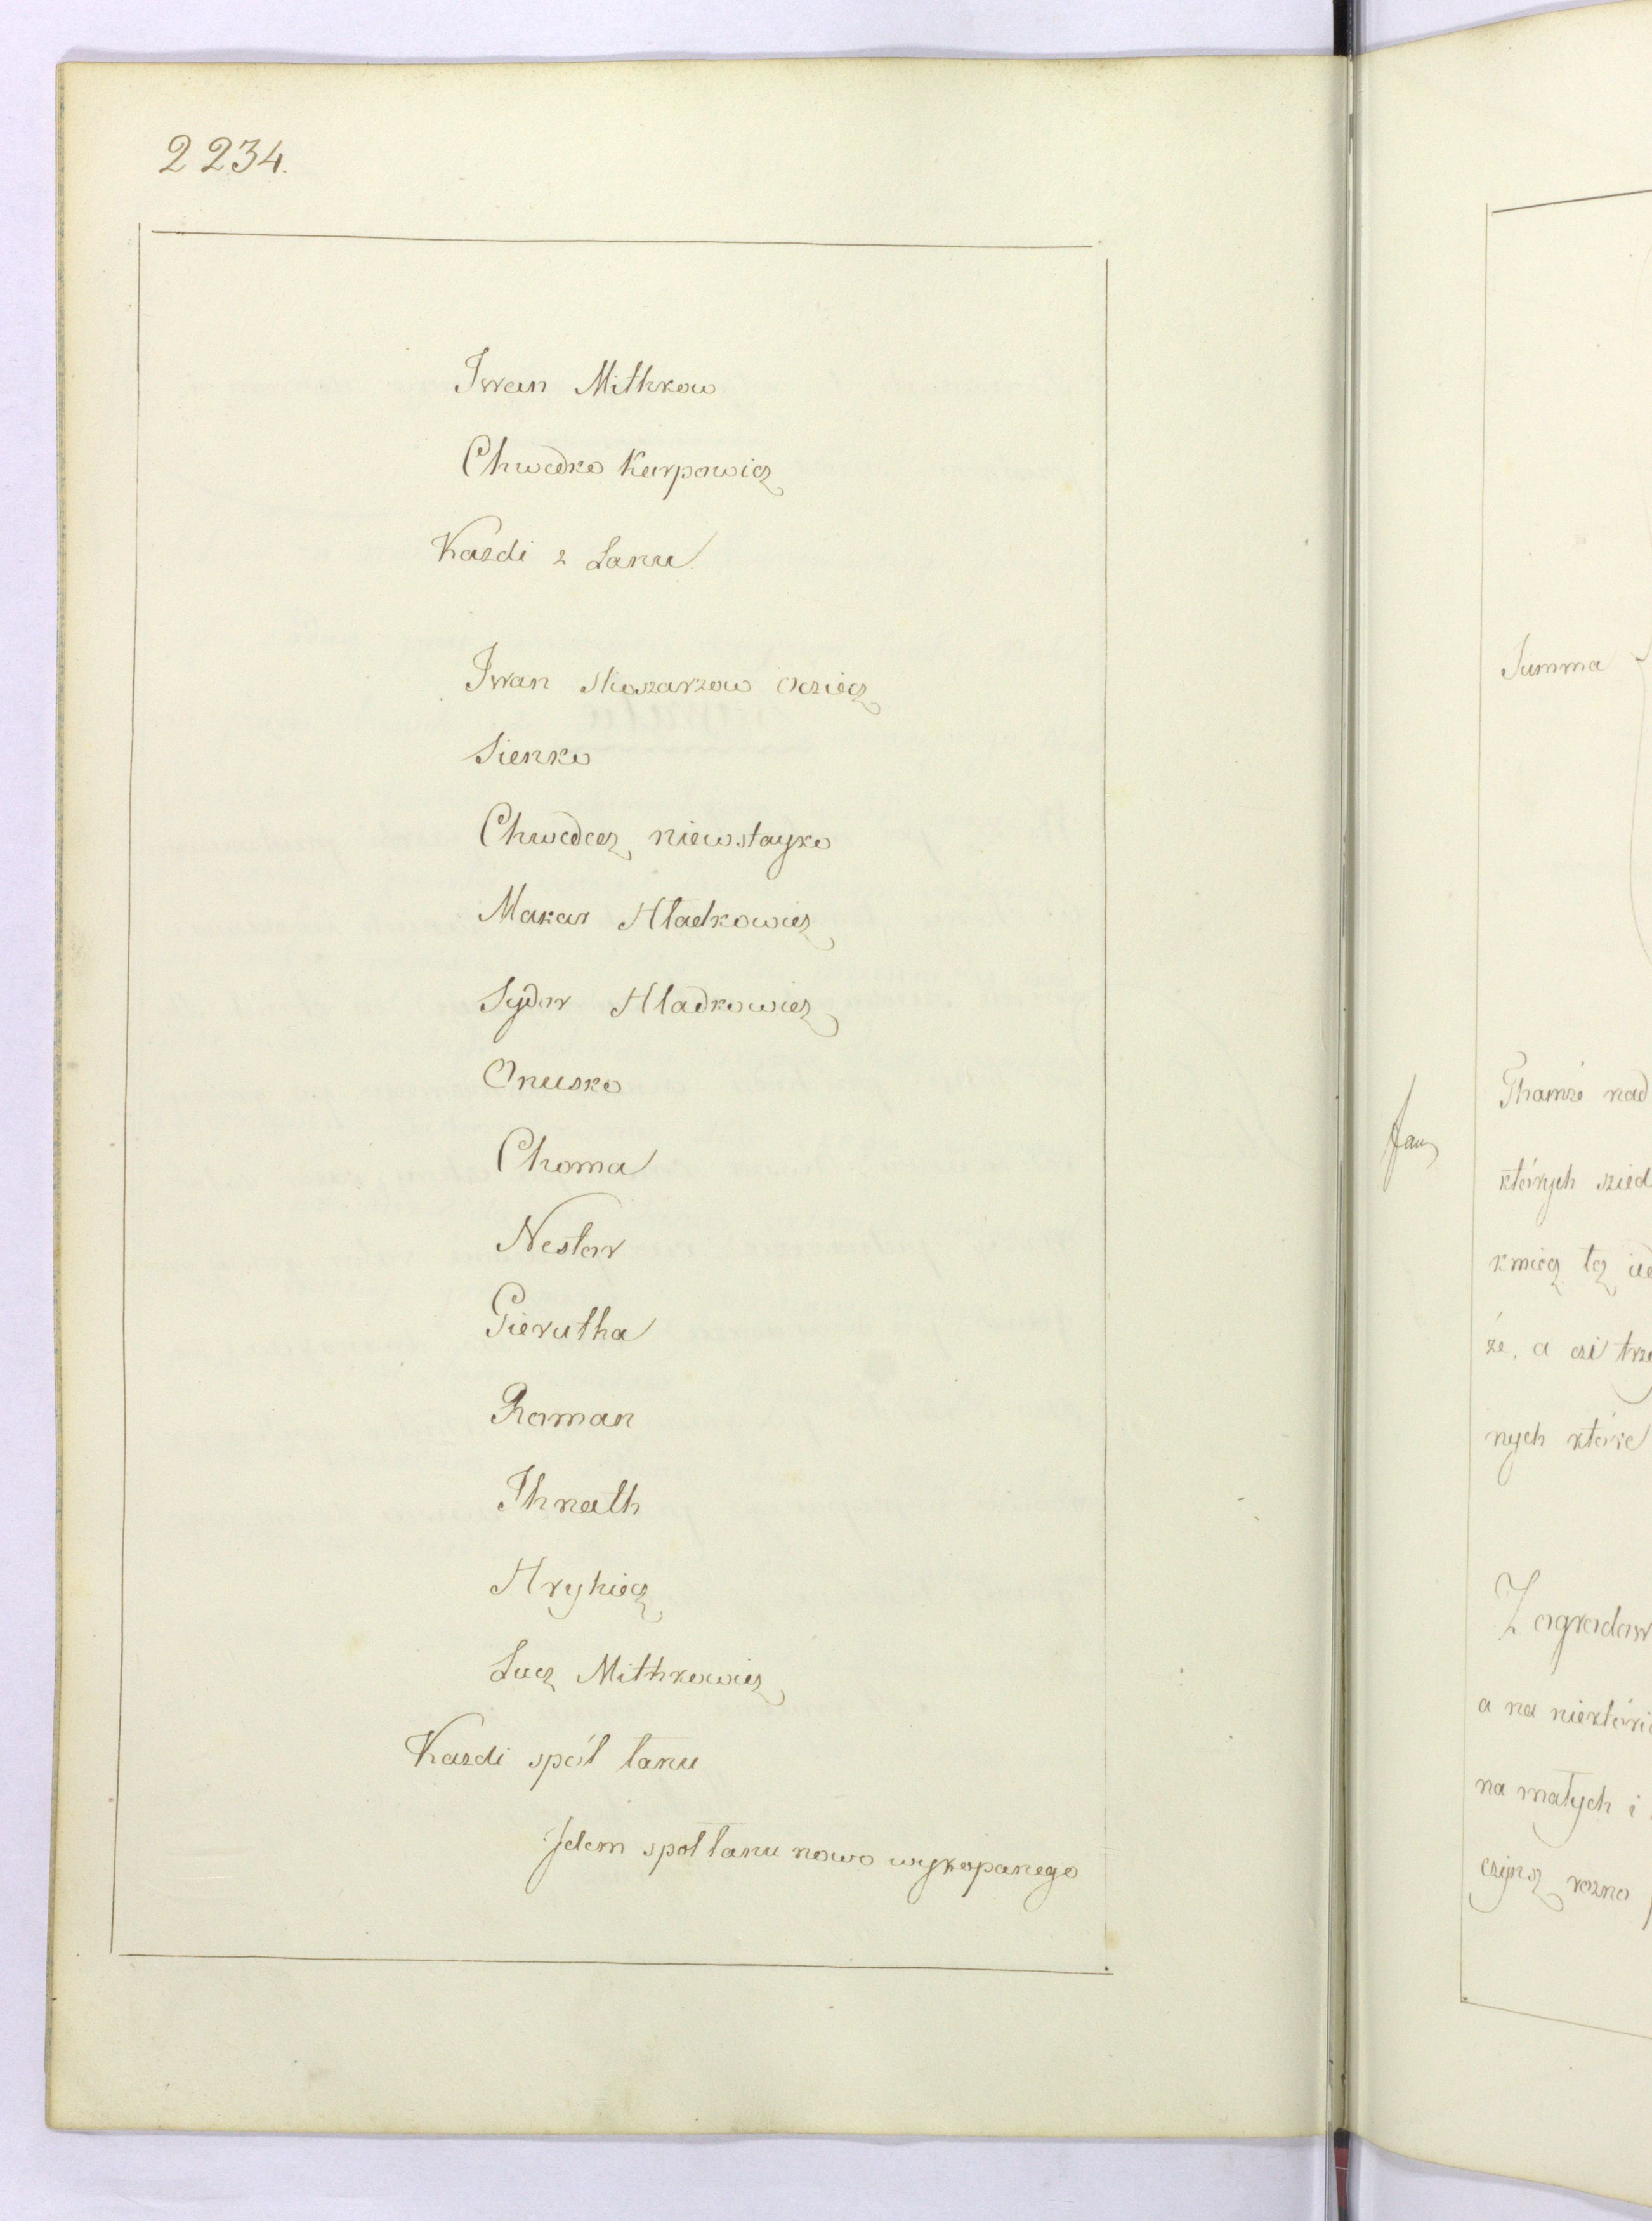 2234.
Iwan Mithkow
Chwedko Karpowicz
Kazdi z Łanu
Iwan Sliozarzow ocziecz
Sienko
Chwedecz niewstayko
Makar Hładkowicz
Sydor Hładkowicz
Onusko
Choma
Nestor
Gierutha
Roman
Ihnath
Hryhiecz
Lucz Mithkowicz
Kazdi spół łanu
Jdem spol łanu nowo wykopanego
Summa
Thamże nad
których szied
kmiecz tcz
że, a czi
nych które
Zagrodow
a na niektóri
na małych i
czynsz rozno